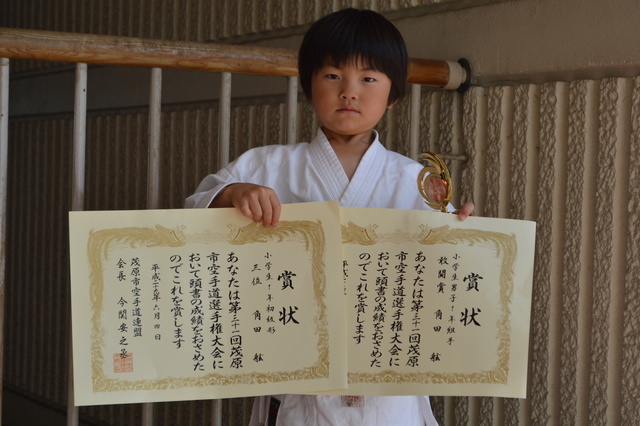 賞状
小学生1年初級形
三位 角田
あなたは第三十一回茂原
市空手道選手権大会に
おいて頭書の成績をおさめた
のでこれを賞します
平成二十九年六月四日
茂原市空手道連盟
会長 今関安之
賞状
小学生男子1年組手
敢闘賞 角田
あなたは第三十一回茂原
市空手道選手権大会に
おいて頭書の成績をおさめた
のでこれを賞します